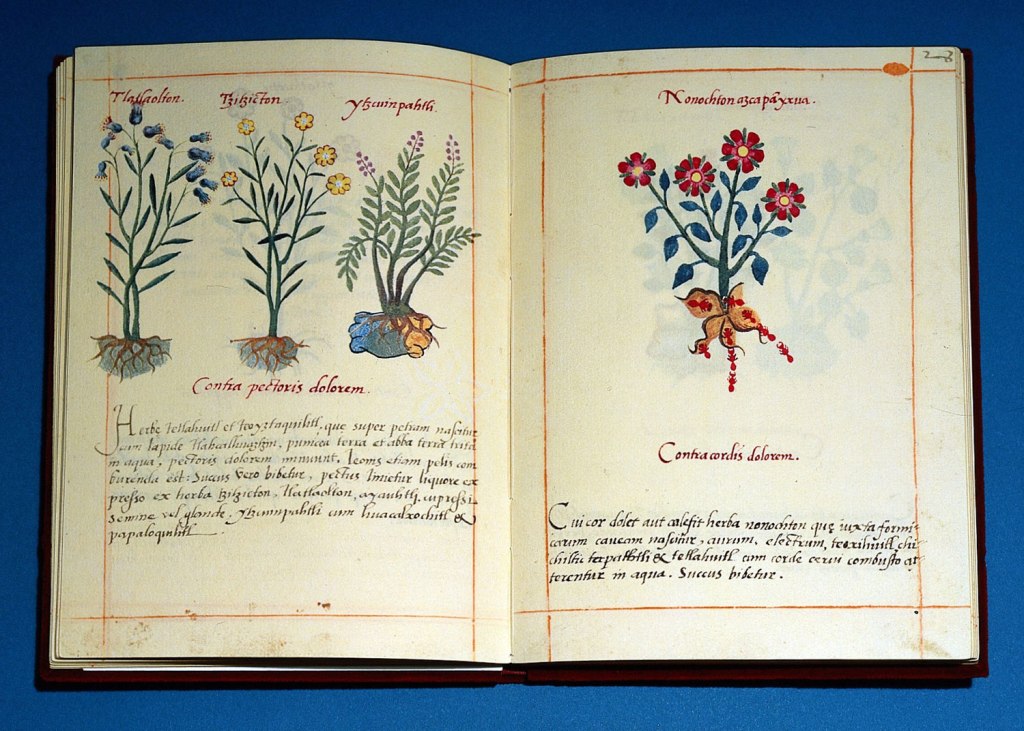 Tlatlaolton.
Tzitzicton
Ytzcuinpahtli.
Contra pectoris dolorem.
Herbę tetlahuitl et teoyztaquilitl, que super petram nascitur
cum lapide tlahcalhuatzin, punicea terra et alba terra trita
in aqua, pectoris dolorem minuunt. leonis etiam pelis com
burenda est: Succus vero bibetur, pectus linietur liquore ex
presso ex herba tzitzicton, tlatlaolton, ayauhtli, cupressi
semine vel glande, ytzcuinpahtli cum huacalxochitl &
papaloquilitl.
23
Nonochton azcapanyxua.
Contra cordis dolorem.
Cui cor dolet aut calefit herba nonochton que iuxta formi-
carum caveam nascitur, aurum, electrum, teoxihuitl, chi-
chiltic tapachtli & tetlahuitl cum corde cervi combusto at
terentur in aqua. Succus bibetur.